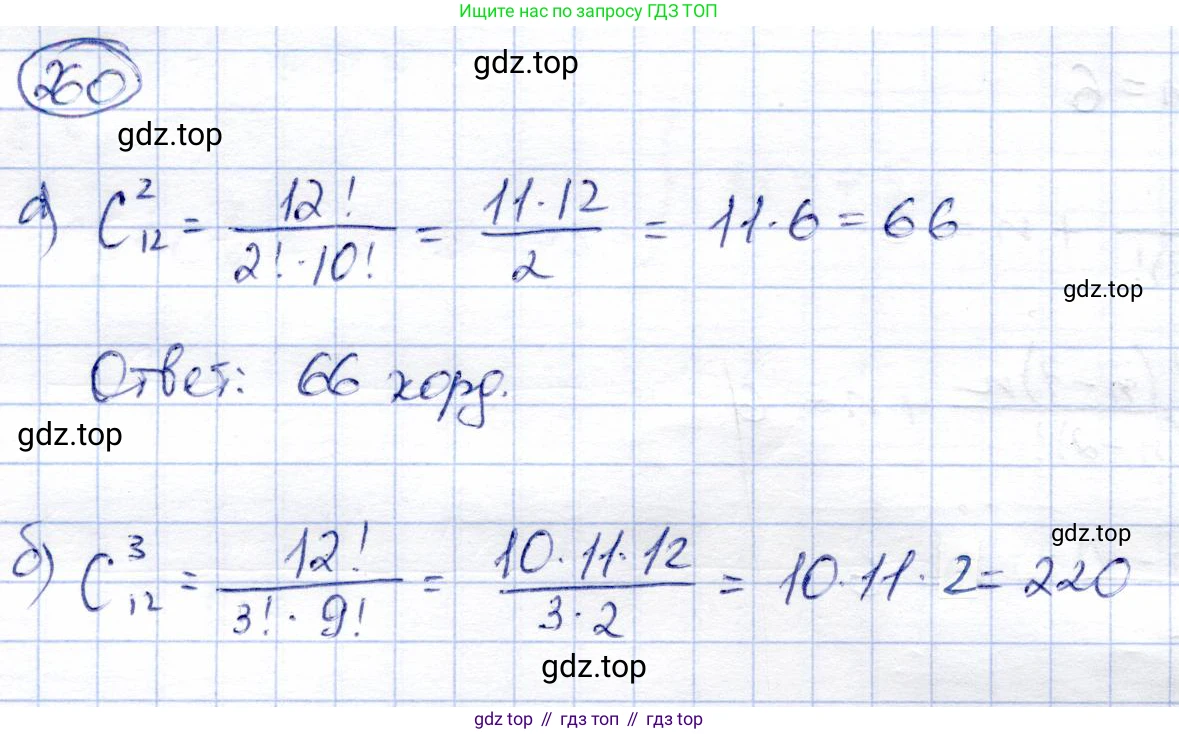 Ищите нас по запросу ГДЗ ТОП
gdz.top
260
gdz.top
а) C²₁₂ = 12! / (2! · 10!) = 11 · 12 / 2 = 11 · 6 = 66
gdz.top
Ответ: 66 хорд.
gdz.top
gdz.top
б) C³₁₂ = 12! / (3! · 9!) = 10 · 11 · 12 / (3 · 2) = 10 · 11 · 2 = 220
gdz.top
gdz top // гдз топ // гдз top